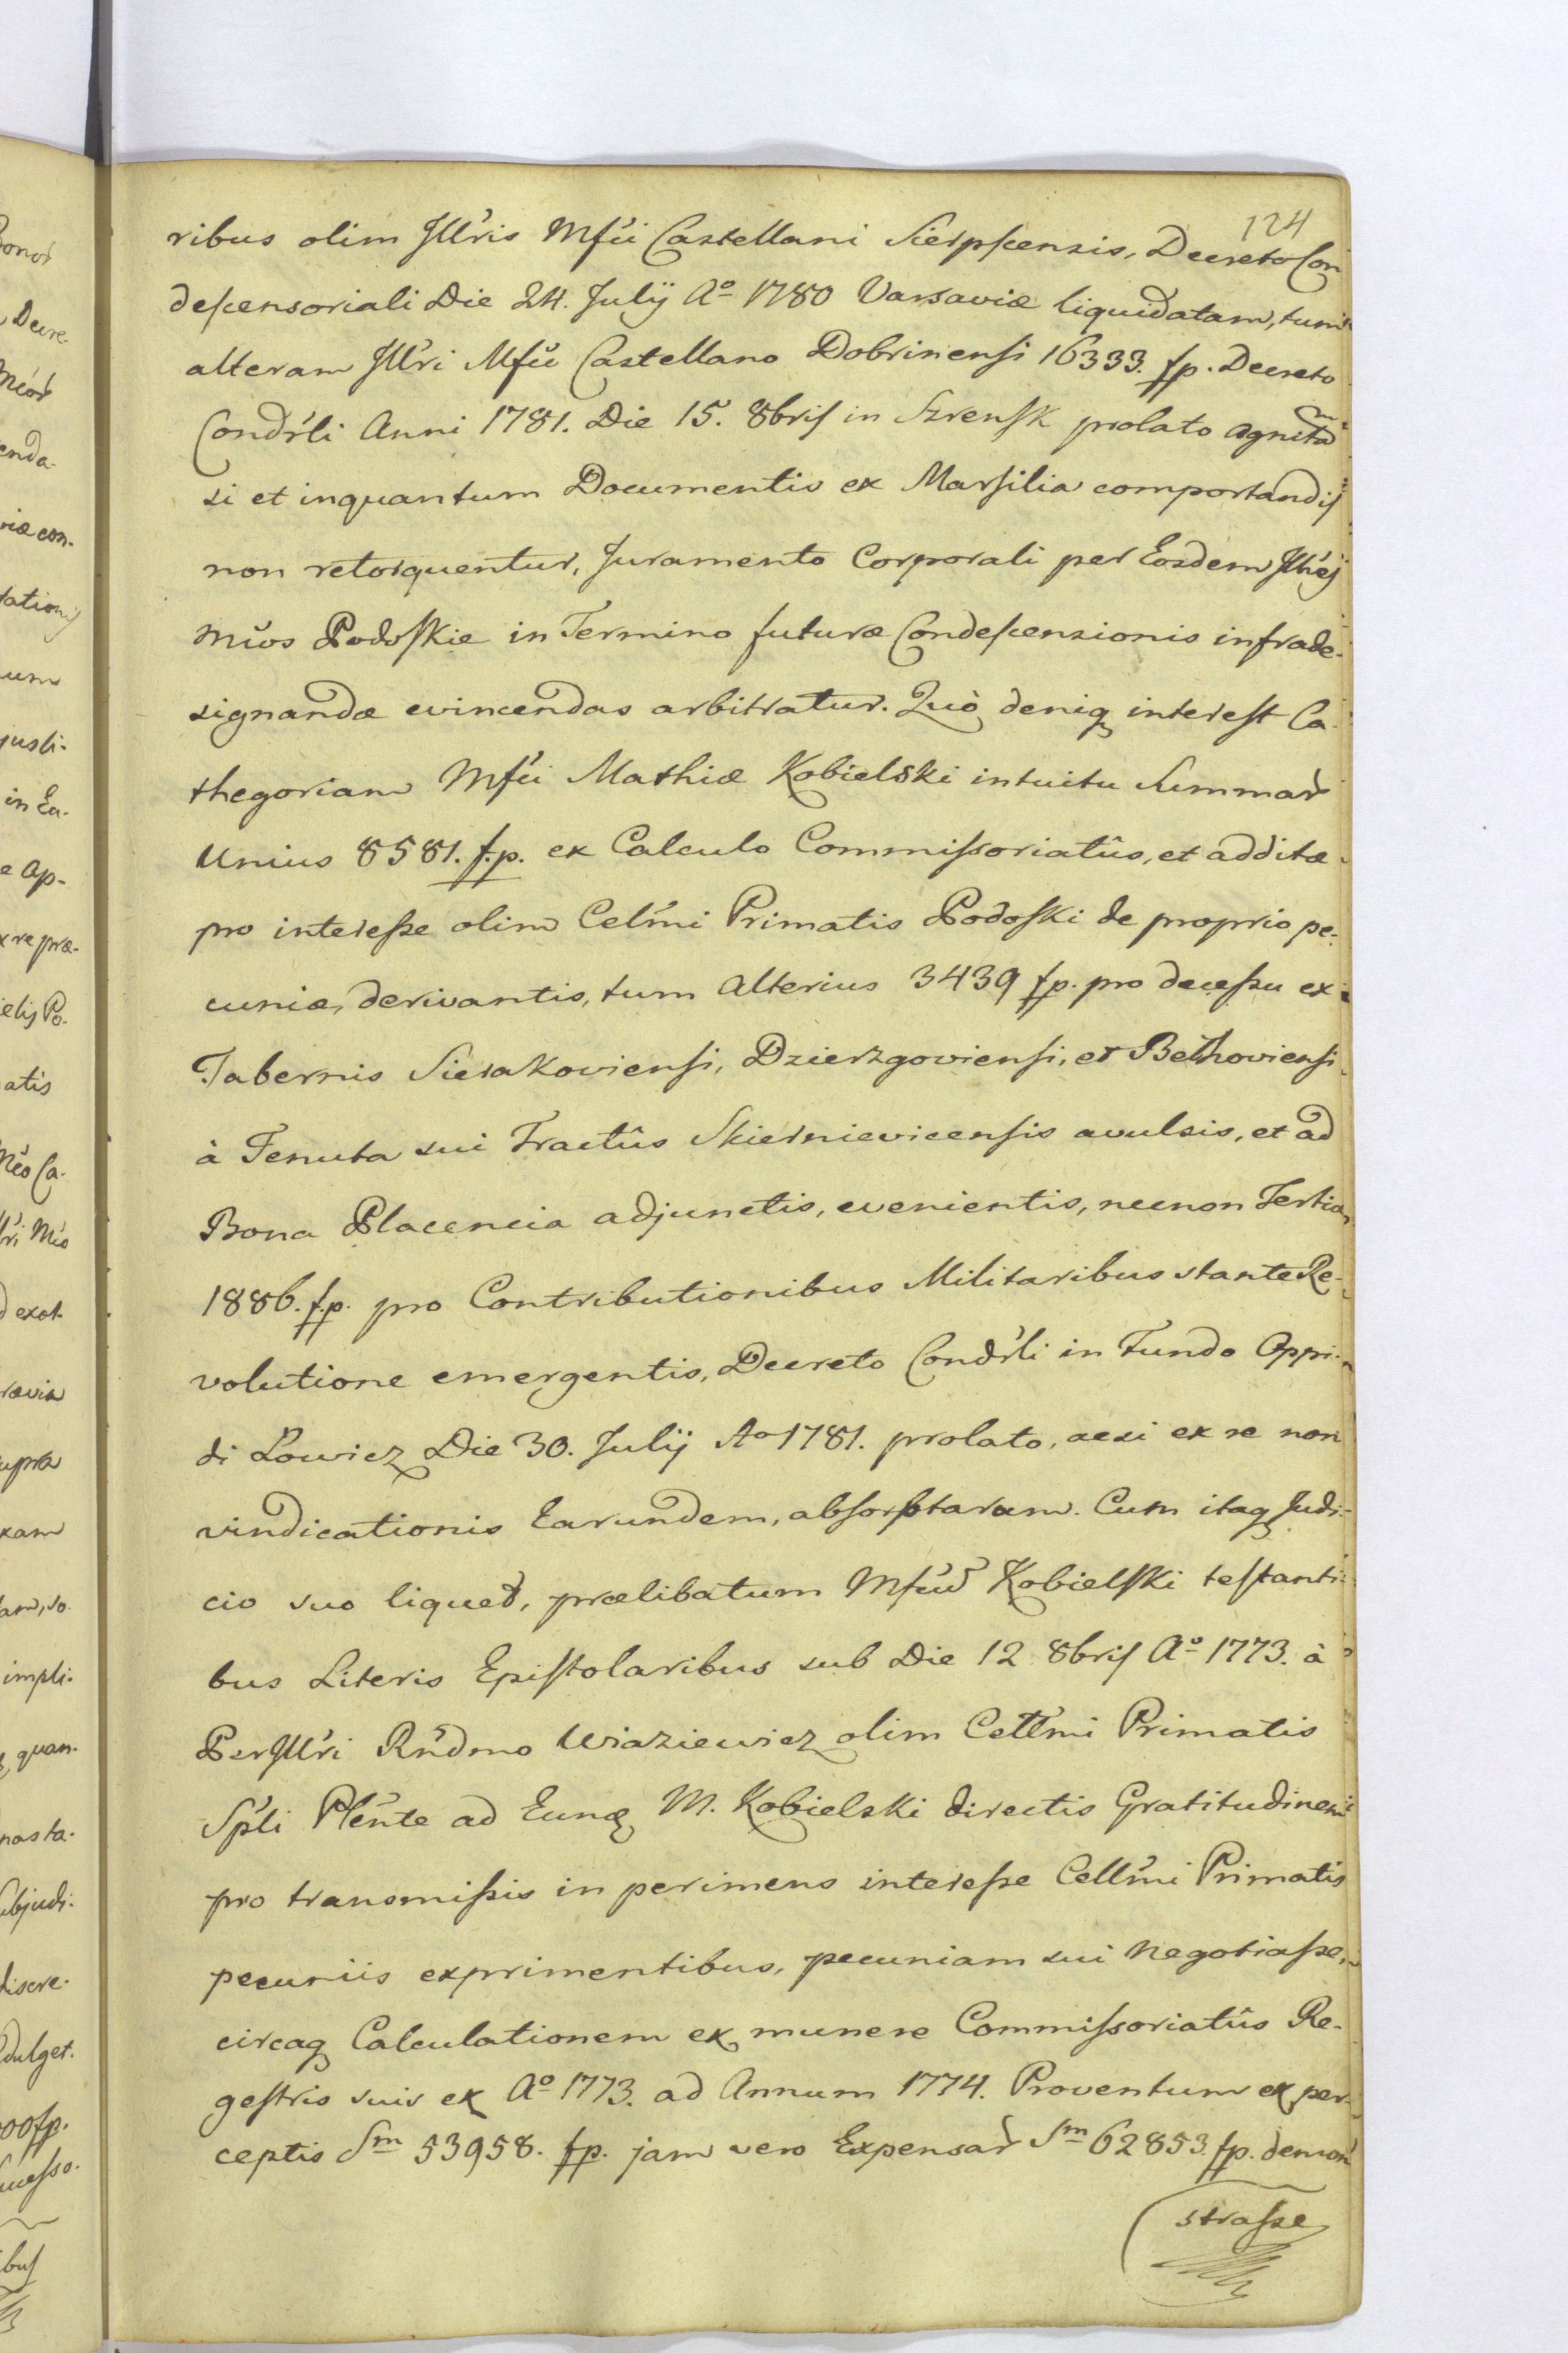 124
ribus olim Jllr̃is Mfc̃i Castellani Sierpscensis, Decreto Con
descensoriali Die 24. Julij Aº 1780 Varsaviæ liquidatam, tum
alteram Jllr̃i Mfc̃o Castellano Dobrinensi 16333. fp. Decreto
Condr̃li Anni 1781. Die 15. 8bris in Szrensk prolato agnitam
si et inquantum Documentis ex Marsilia comportandis
non retorquentur, Juramento Corporali per Eosdem Jllres
Mc̃os Podoskie in Termino futuræ Condescensionis infrade-
signandæ evincendas arbitratur. Quò deniq interest Ca-
thegoriam Mfc̃i Mathiæ Kobielski intuitu Summar
Unius 8581. f.p. ex Calculo Commissoriatûs, et additæ
pro interesse olim Cels̃mi Primatis Podoski de proprio pe-
cuniæ, derivantis, tum Alterius 3439 fp. pro decessu ex
Tabernis Sierakoviensi, Dzierzgoviensi, et Bełhoviensi
à Tenuta sui Tractûs Skiernievicensis avulsis, et ad
Bona Placencia adjunctis, evenientis, necnon Tertiæ
1886. f.p. pro Contributionibus Militaribus stante Re-
volutione emergentis, Decreto Condr̃li in Fundo Oppi-
di Lowicz Die 30. Julij Aº 1781. prolato, acsi ex re non
vindicationis Earundem, absorptarum. Cum itaq Judi-
cio suo liquet, prælibatum Mfcum Kobielski testanti-
bus Literis Epistolaribus sub Die 12 8bris Aº 1773. à
PerJllr̃i Rñdmo Wiaziewicz olim Cels̃mi Primatis
Sp̃li Pleñte ad Eunq M. Kobielski directis Gratitudinem
pro transmissis in perimens interesse Cells̃mi Primatis
pecuniis exprimentibus, pecuniam sui negotiasse,
circaq Calculationem ex munere Commissoriatûs Re-
gestris suis ex Aº 1773. ad Annum 1774. Proventum ex per-
ceptis Sm 53958. fp. jam vero Expensar Sm 62853 fp. demon
strasse